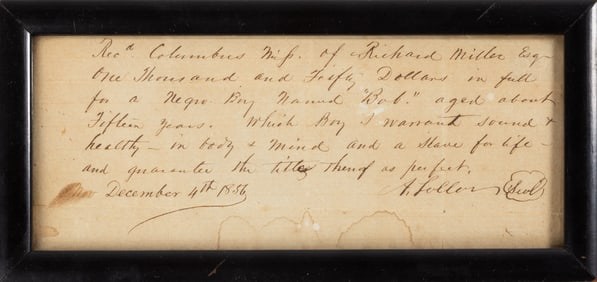 Recd. Columbus Miss. of Richard Miller Esq
One Thousand and Forty Dollars in full
for a Negro Boy Named "Bob." aged about
Fifteen years. Which Boy I warrant sound &
healthy - in body & mind and a Slave for life -
and guarantee the title thereof as perfect.
December 4th 1856
A.